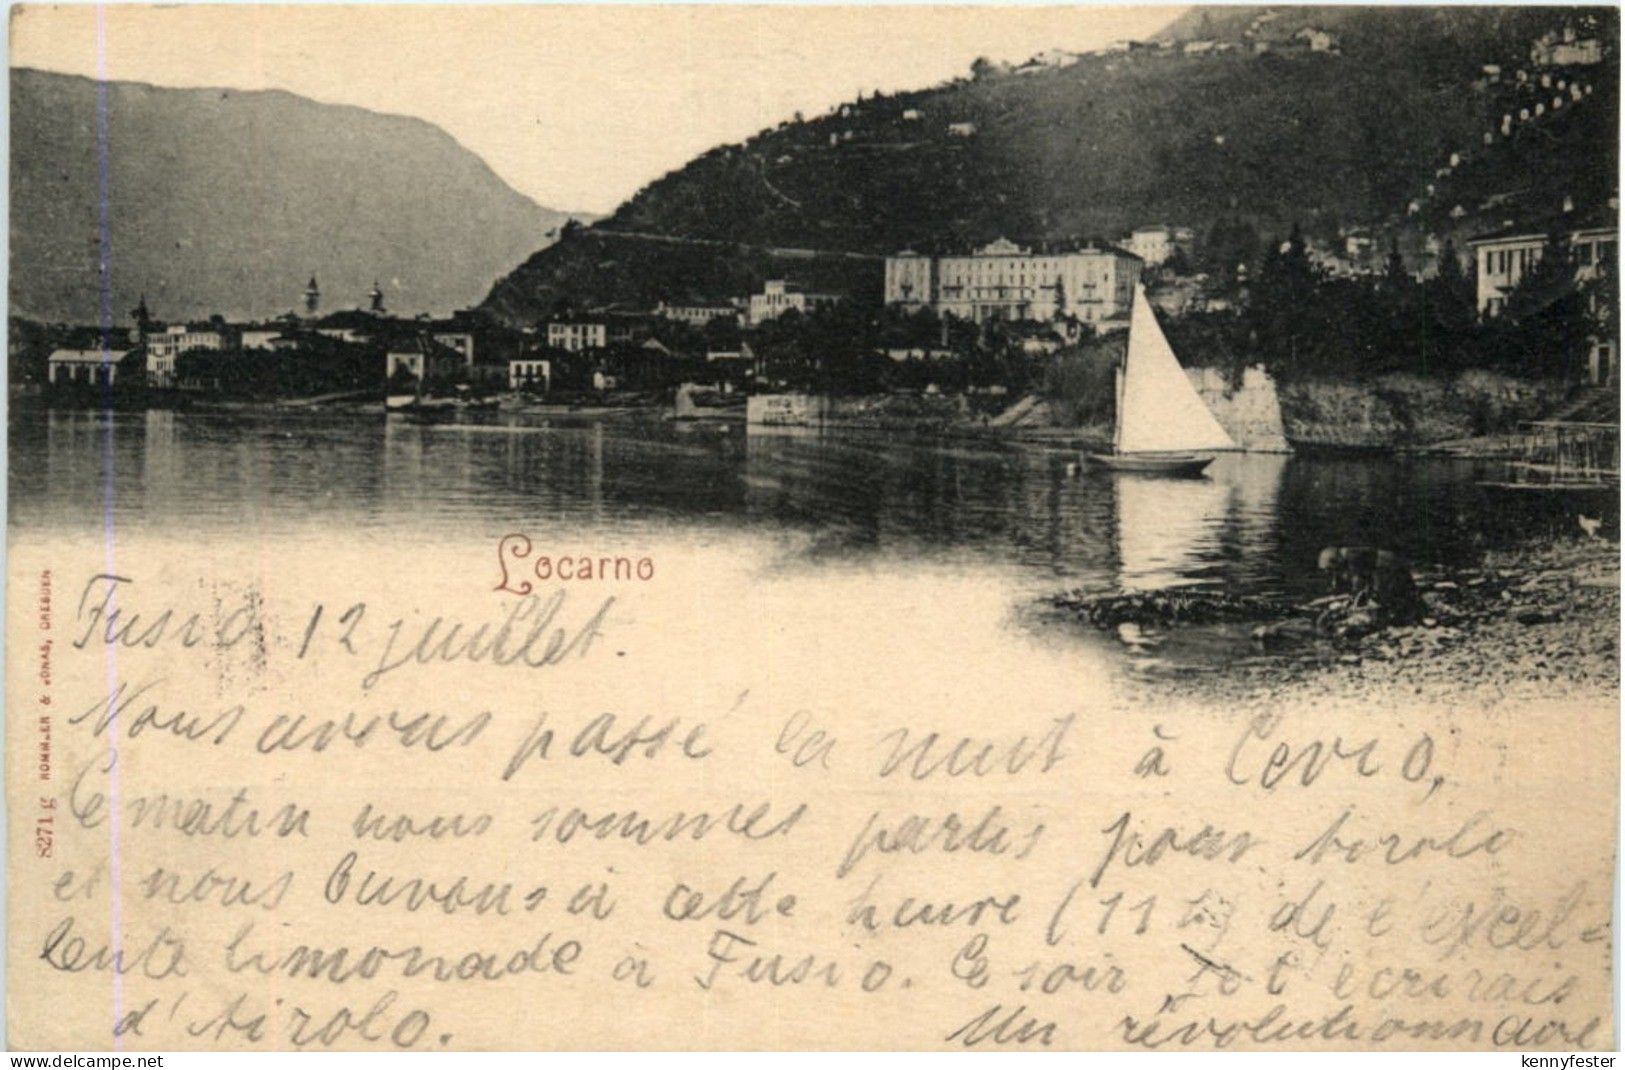 Locarno
8271 g ROMMLER & JONAS, DRESDEN
Fusio 12 juillet.
Nous avons passé la nuit à Cevio,
Ce matin nous sommes partis pour Airolo
et nous buvons à cette heure (11 h) de l'excel=
lente limonade à Fusio. Ce soir je t'écrirais
d'Airolo. Un révolutionnaire
www.delcampe.net
kennyfester